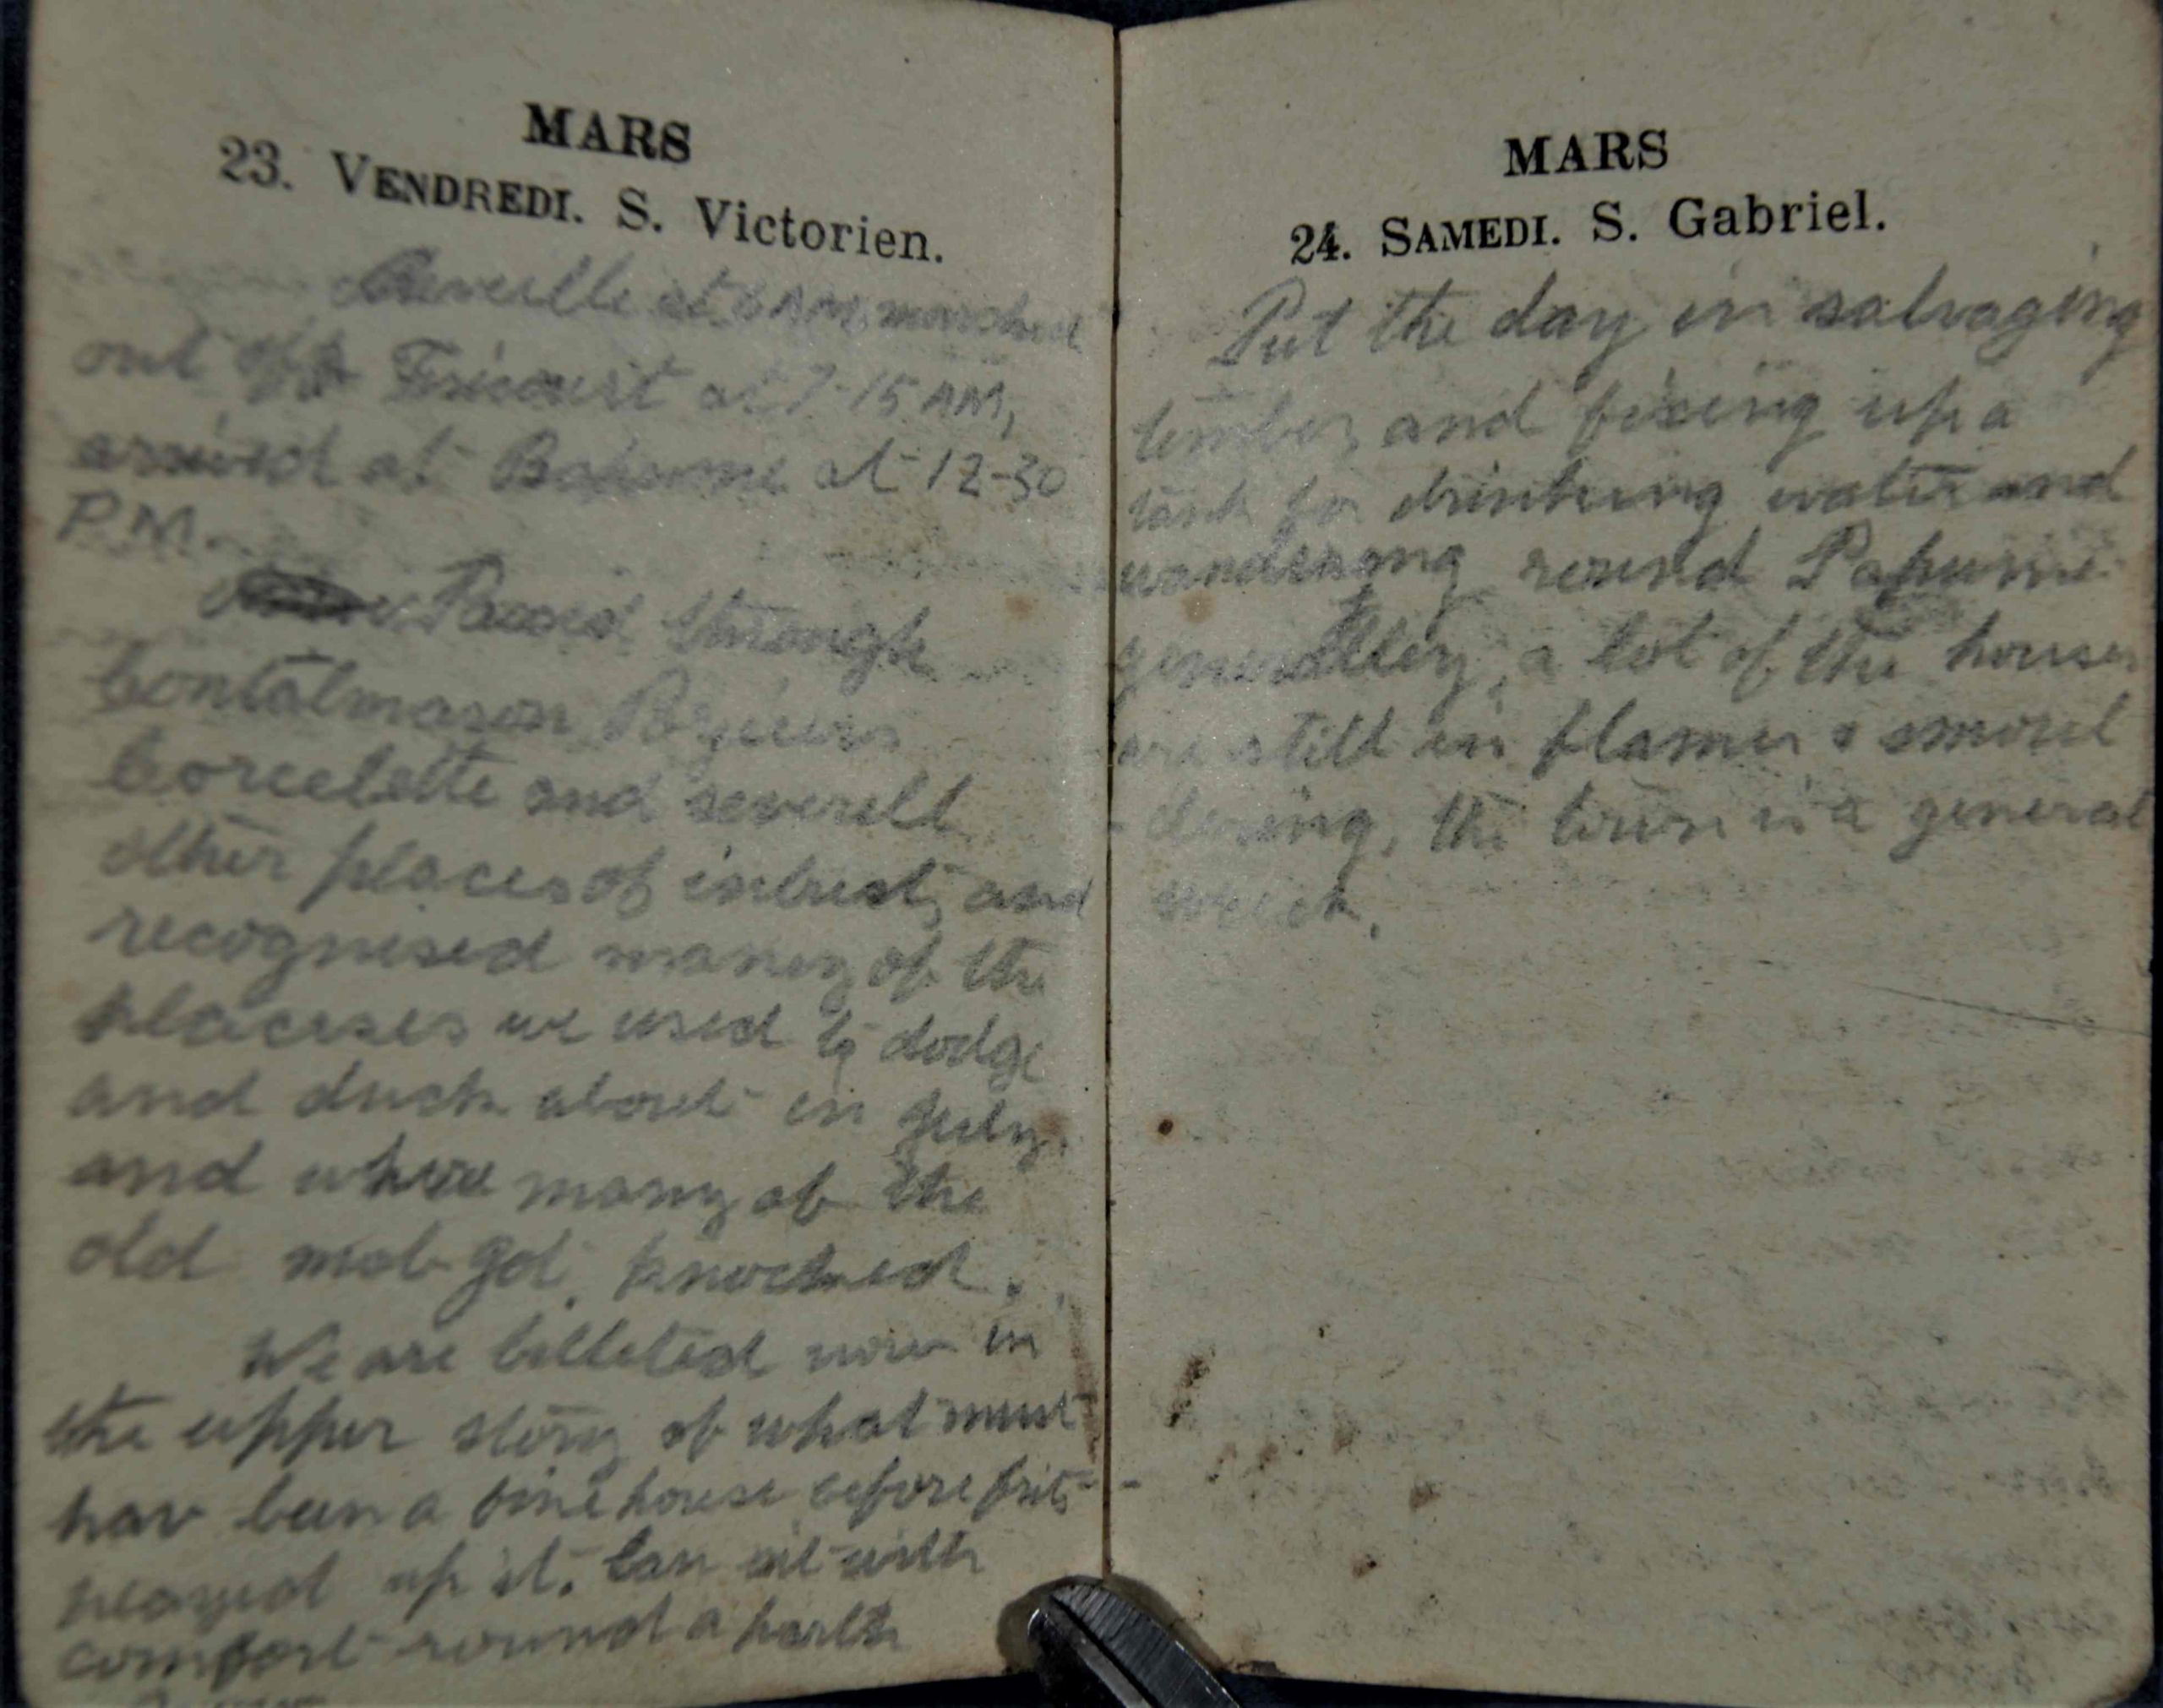 MARS
23. VENDREDI. S. Victorien.
Reveille at 6 AM marched
out of Fricourt at 7-15 AM,
arrived at Bapaume at 12-30
P.M.
Passed through
Contalmason Poziers
Corcelette and severell
other places of intrest, and
recognised maney of the
placeses we used to dodge
and duck about in July.
and where many of the
old mob got knocked.
We are billeted now in
the upper story of what must
hav been a fine house before frits
played up it. Can sit with
comfort round a harth
MARS
24. SAMEDI. S. Gabriel.
Put the day in salvaging
timber, and fixing up a
tank for drinking water and
wandering round Bapaume
generalley, a lot of the houses
are still in flames & smoul
-dering, the town is a general
wreck.